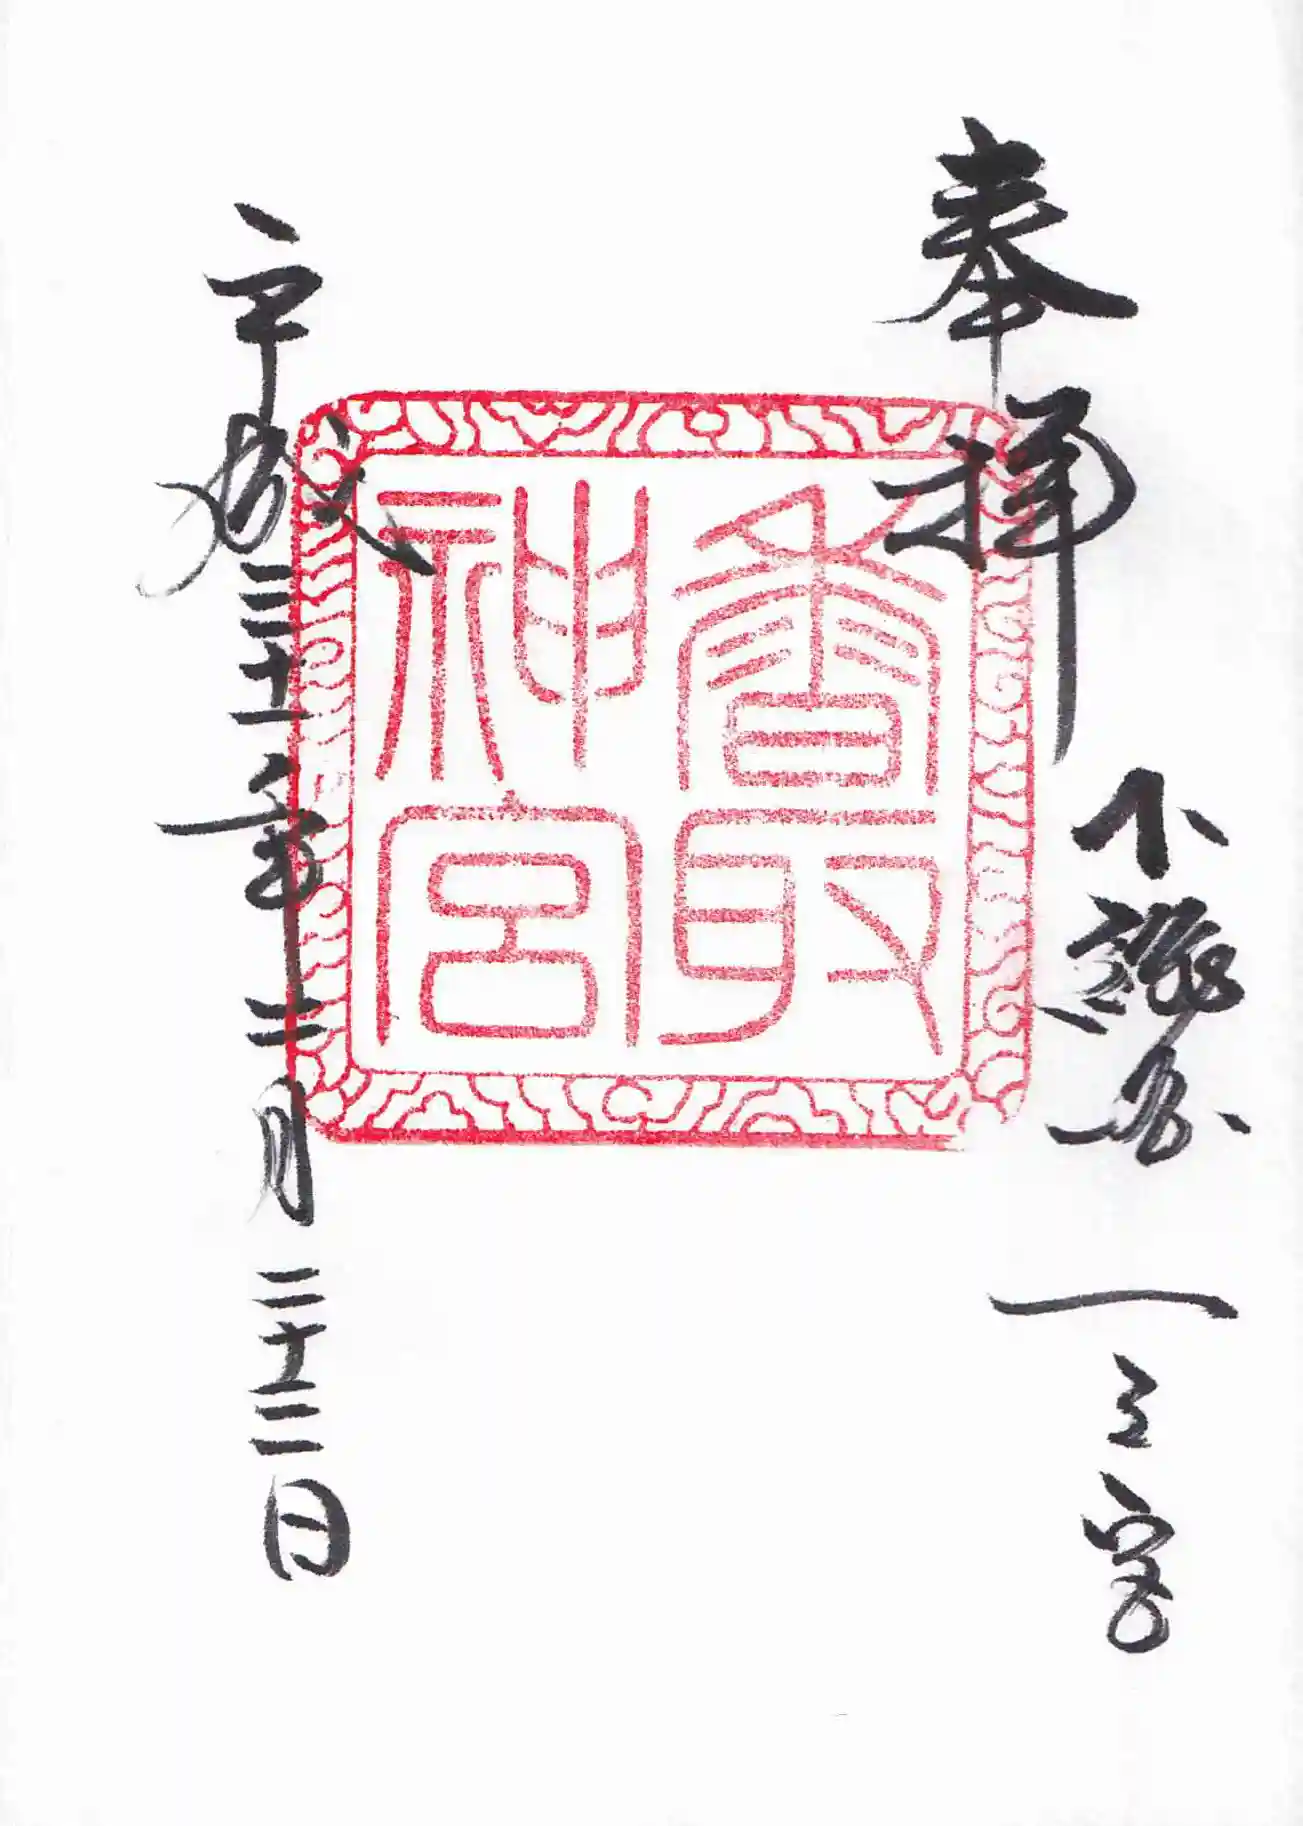 奉拝
下総国一之宮
香取
神宮
平成三十一年二月二十三日